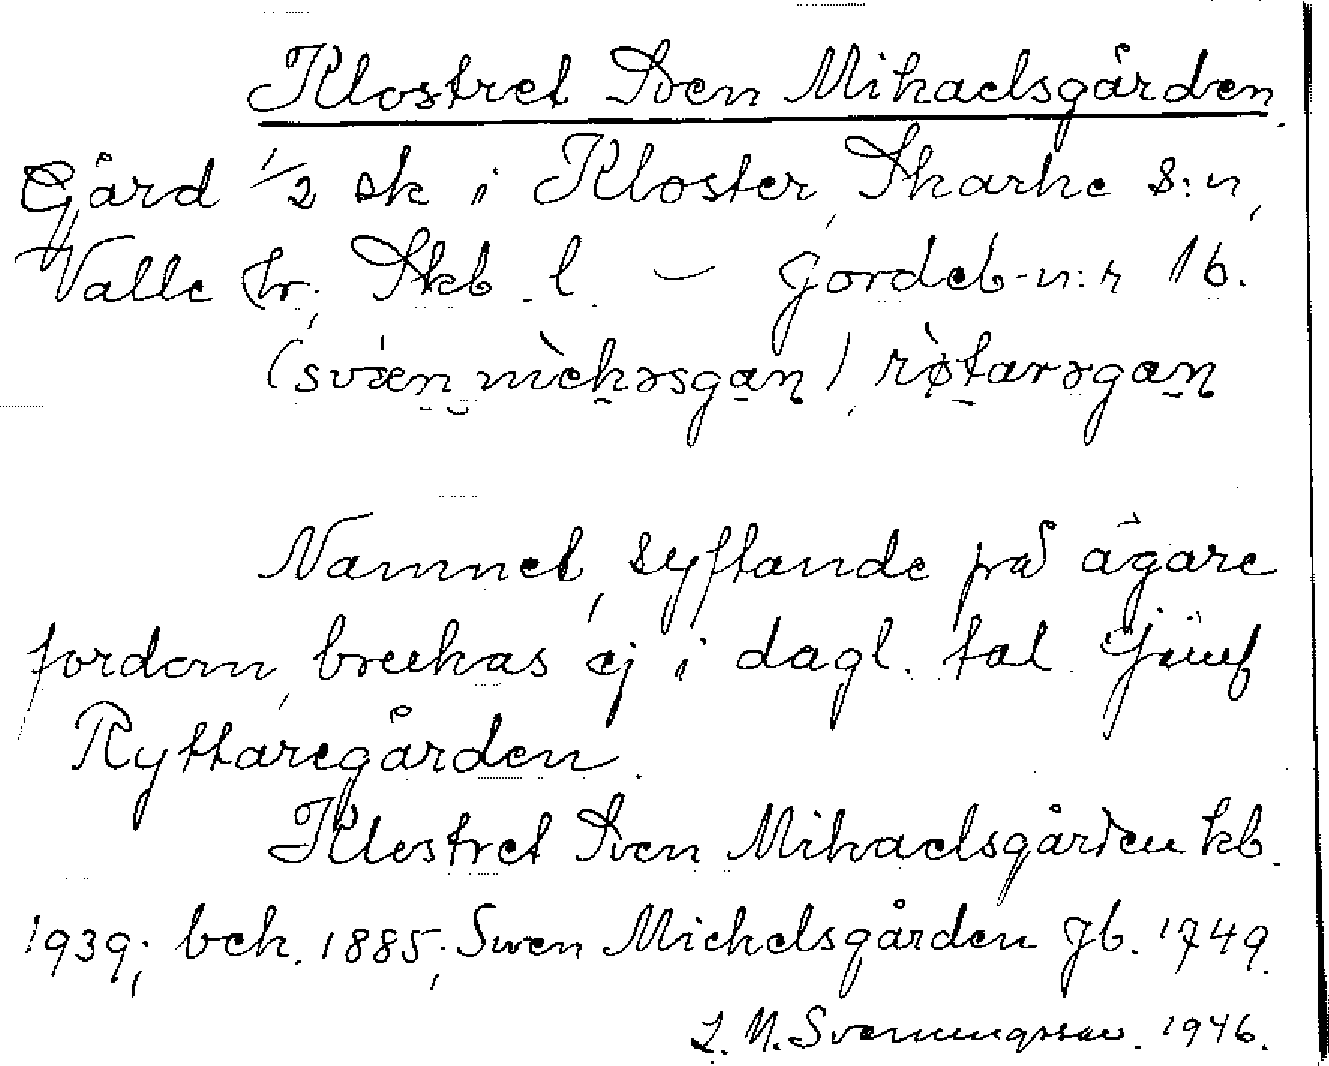 Klostret Sven Mikaelsgården.
Gård 1/2 sk i Kloster, Skarke s:n,
Valle hr, Skb. l. – Jordeb-n:r 16.
(svæn mèkəsgan), rø̀tarəgan
Namnet, syftande på ägare
fordom, brukas ej i dagl. tal. Jämf
Ryttaregården.
Klostret Sven Mikaelsgården kb.
1939; bek. 1885; Swen Michelsgården Jb. 1749.
Svenningsson. 1946.